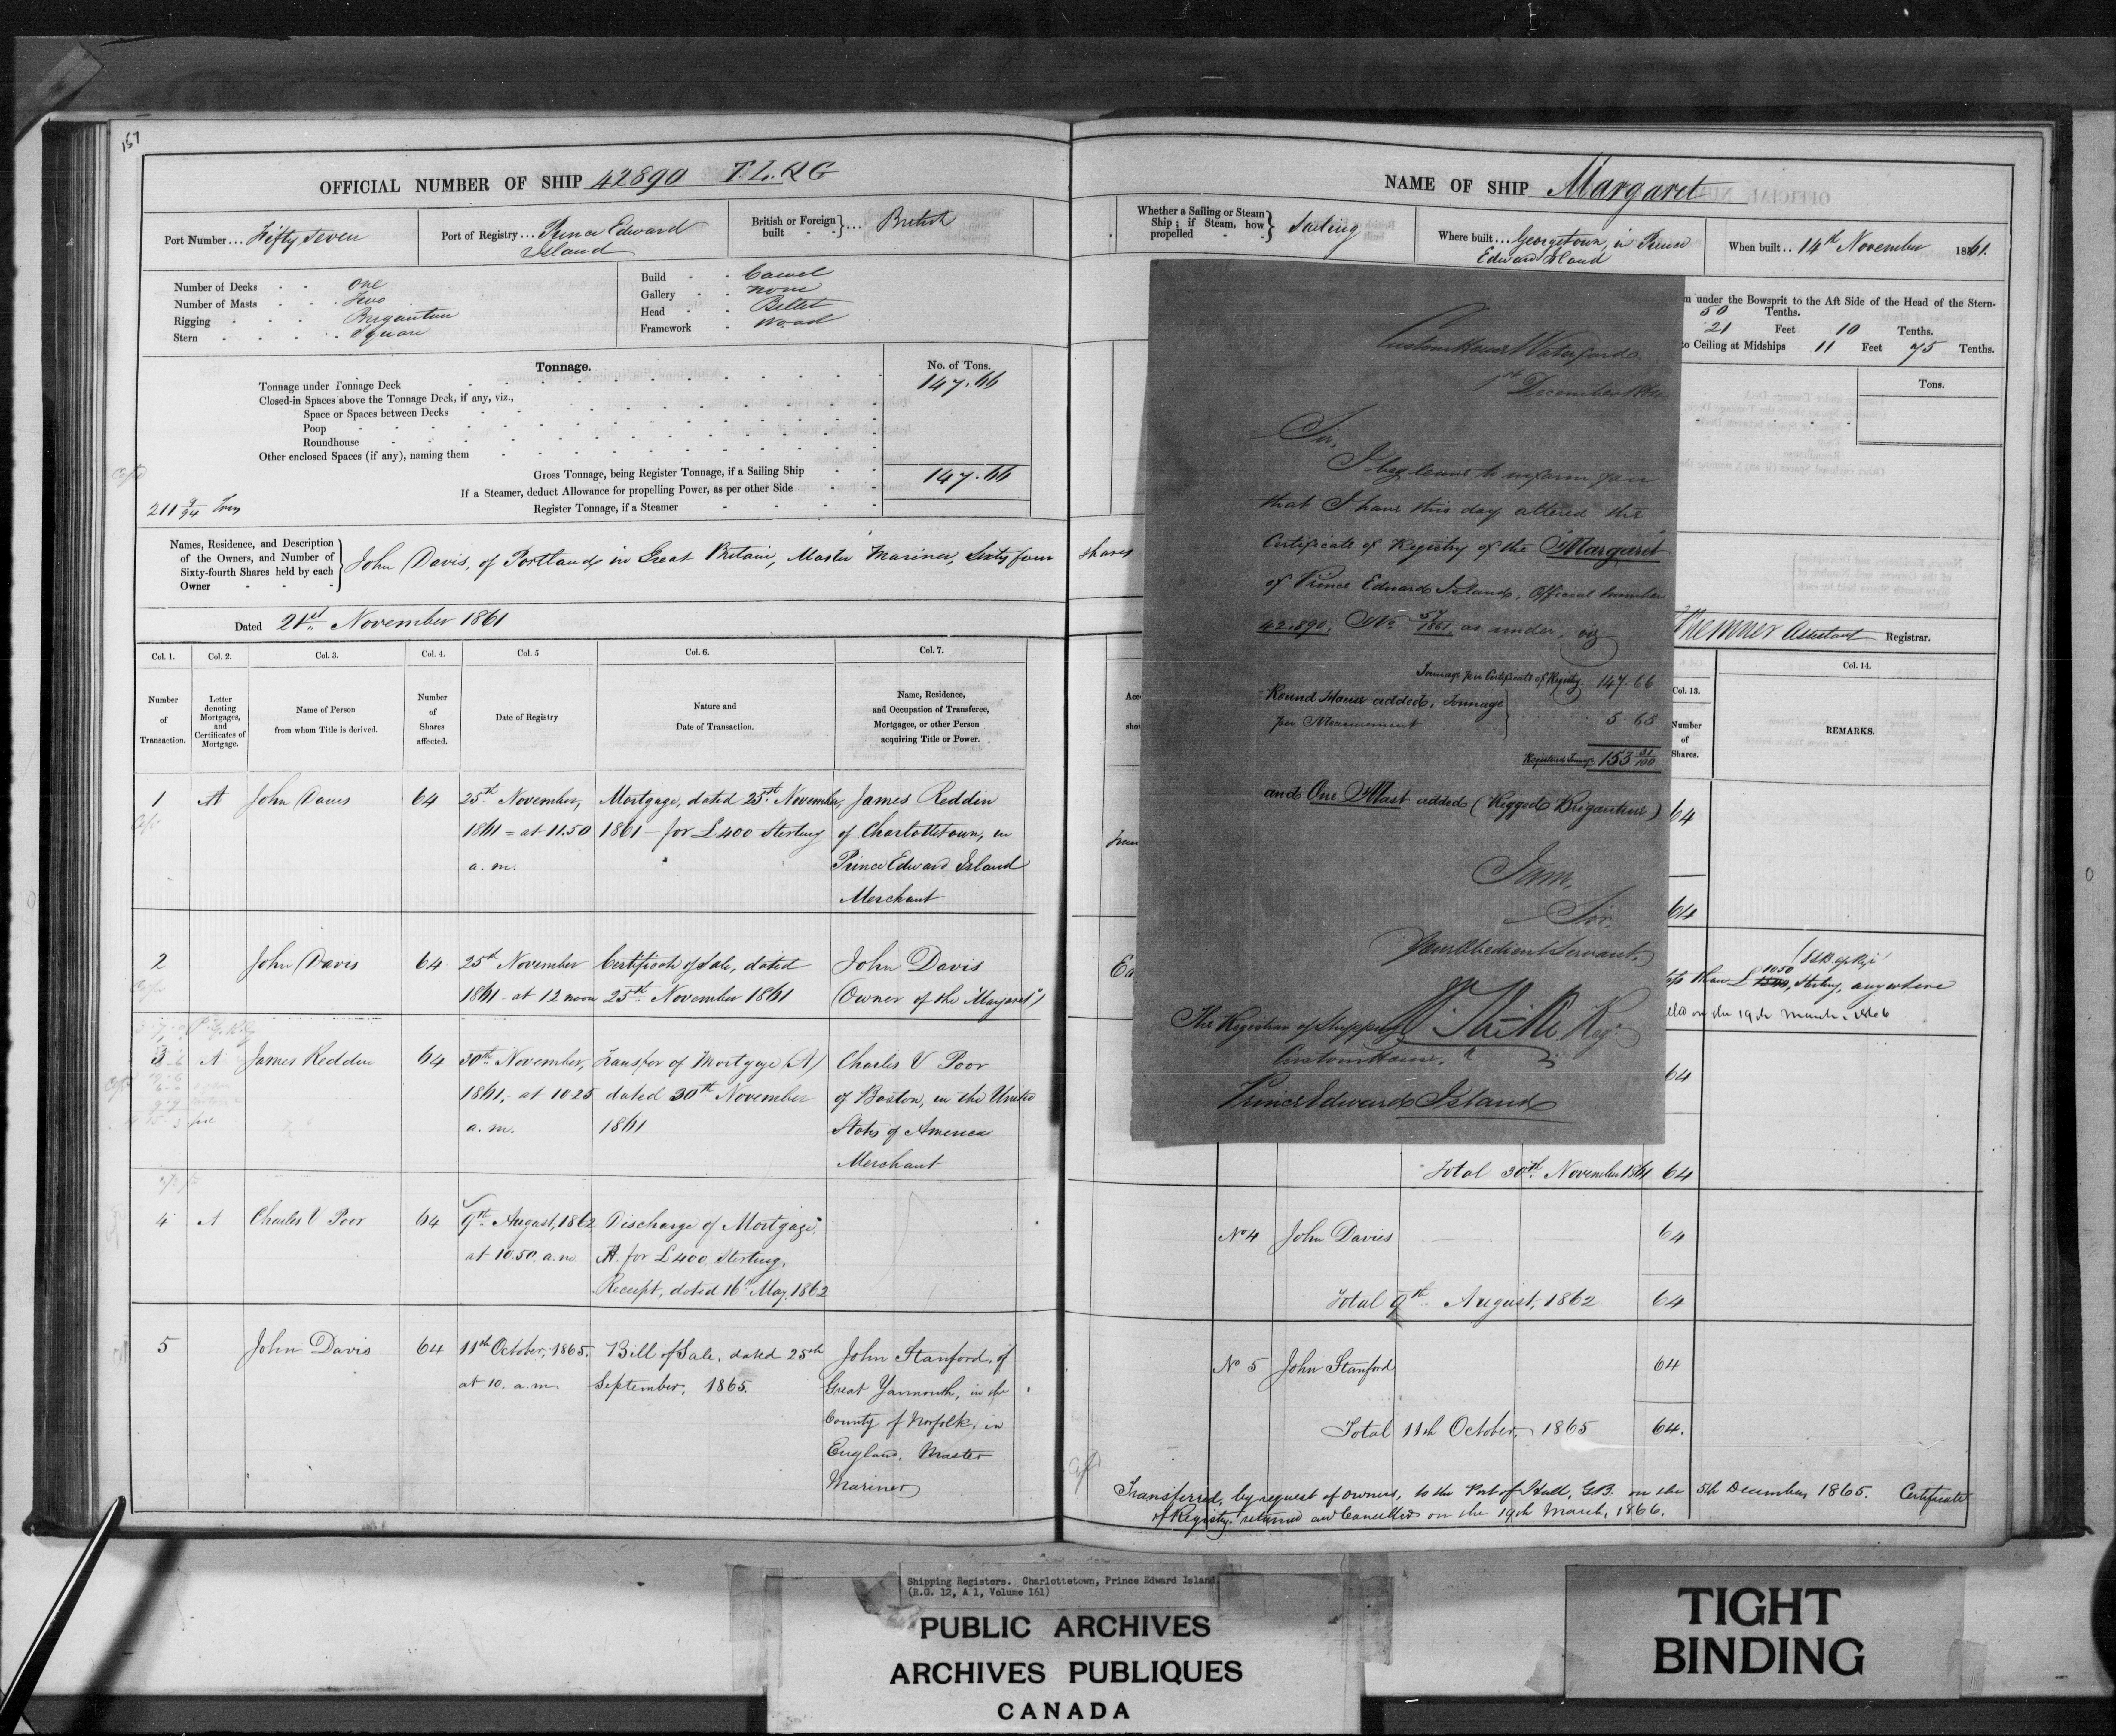 157
OFFICIAL NUMBER OF SHIP 42890 T.L.R.G
Port Number... Fifty seven
Port of Registry... Prince Edward
Island
British or Foreign built } ... British
Number of Decks - - One
Number of Masts - - Two
Rigging - - Brigantine
Stern - - - Square
Build - - Carvel
Gallery - - none
Head - - Billet
Framework - Wood
Tonnage.
No. of Tons.
Tonnage under Tonnage Deck 147.66
Closed-in Spaces above the Tonnage Deck, if any, viz.,
Space or Spaces between Decks
Poop
Roundhouse
Other enclosed Spaces (if any), naming them
Gross Tonnage, being Register Tonnage, if a Sailing Ship 147.66
If a Steamer, deduct Allowance for propelling Power, as per other Side
Register Tonnage, if a Steamer
211 9/94 Tons
Names, Residence, and Description
of the Owners, and Number of
Sixty-fourth Shares held by each
Owner
John Davis, of Portland in Great Britain, Master Mariner, Sixty four shares
Dated 21st November 1861
Col. 1. Col. 2. Col. 3. Col. 4. Col. 5 Col. 6. Col. 7.
Number of Transaction.
Letter denoting Mortgages, and Certificates of Mortgage.
Name of Person from whom Title is derived.
Number of Shares affected.
Date of Registry
Nature and Date of Transaction.
Name, Residence, and Occupation of Transferee, Mortgagee, or other Person acquiring Title or Power.
1 A John Davis 64 25th November, Mortgage, dated 25th November, James Reddin
1861 = at 11.50 1861 - for £400 Sterling of Charlottetown, in
a.m. Prince Edward Island
Merchant
2 John Davis 64 25th November Certificate of Sale, dated John Davis
1861 - at 12 noon 25th November 1861 (Owner of the "Margaret")
3 A James Reddin 64 30th November, Transfer of Mortgage (A) Charles V Poor
1861, at 10 25 dated 30th November of Boston, in the United
a.m. 1861 States of America
Merchant
4 A Charles V Poor 64 9th August, 1862 Discharge of Mortgage
at 10.50. a.m. A. for £400, Sterling,
Receipt, dated 16th May, 1862
5 John Davis 64 11th October, 1865. Bill of Sale, dated 25th John Stanford, of
at 10. a.m September, 1865. Great Yarmouth, in the
County of Norfolk, in
England, Master
Mariner
NAME OF SHIP Margaret
Whether a Sailing or Steam Ship; if Steam, how propelled } Sailing
Where built... Georgetown, in Prince
Edward Island
When built.. 14th November 1861.
under the Bowsprit to the Aft Side of the Head of the Stern-
50 Tenths.
21 Feet 10 Tenths.
to Ceiling at Midships 11 Feet 75 Tenths.
Tons.
Assistant Registrar.
Col. 13. Col. 14.
Number of Shares.
REMARKS.
Custom House Waterford.
1st December 1864
Sir,
I beg leave to inform you
that I have this day altered the
Certificate of Registry of the "Margaret"
of Prince Edward Island, Official number
42.890. No. 57/1861, as under, viz
Tonnage per Certificate of Registry 147.66
Round House added, Tonnage
per Measurement 5.65
Registered Tonnage 153 31/100
and One Mast added (Rigged Brigantine)
I am,
Sir,
Your Obedient Servant,
Regr
The Registrar of Shipping
Custom House,
Prince Edward Island
64
64
than £ 1050, Sterling, anywhere
on the 19th March, 1866
64
Total 30th November 1861 64
No 4 John Davies 64
Total 9th August, 1862 64
No 5 John Stanford 64
Total 11th October, 1865 64.
Transferred, by request of owners, to the Port of Hull, G.B. on the 5th December, 1865. Certificate
of Registry returned and Cancelled on the 19th March, 1866.
Shipping Registers. Charlottetown, Prince Edward Island.
(R.G. 12, A 1, Volume 161)
PUBLIC ARCHIVES
ARCHIVES PUBLIQUES
CANADA
TIGHT
BINDING